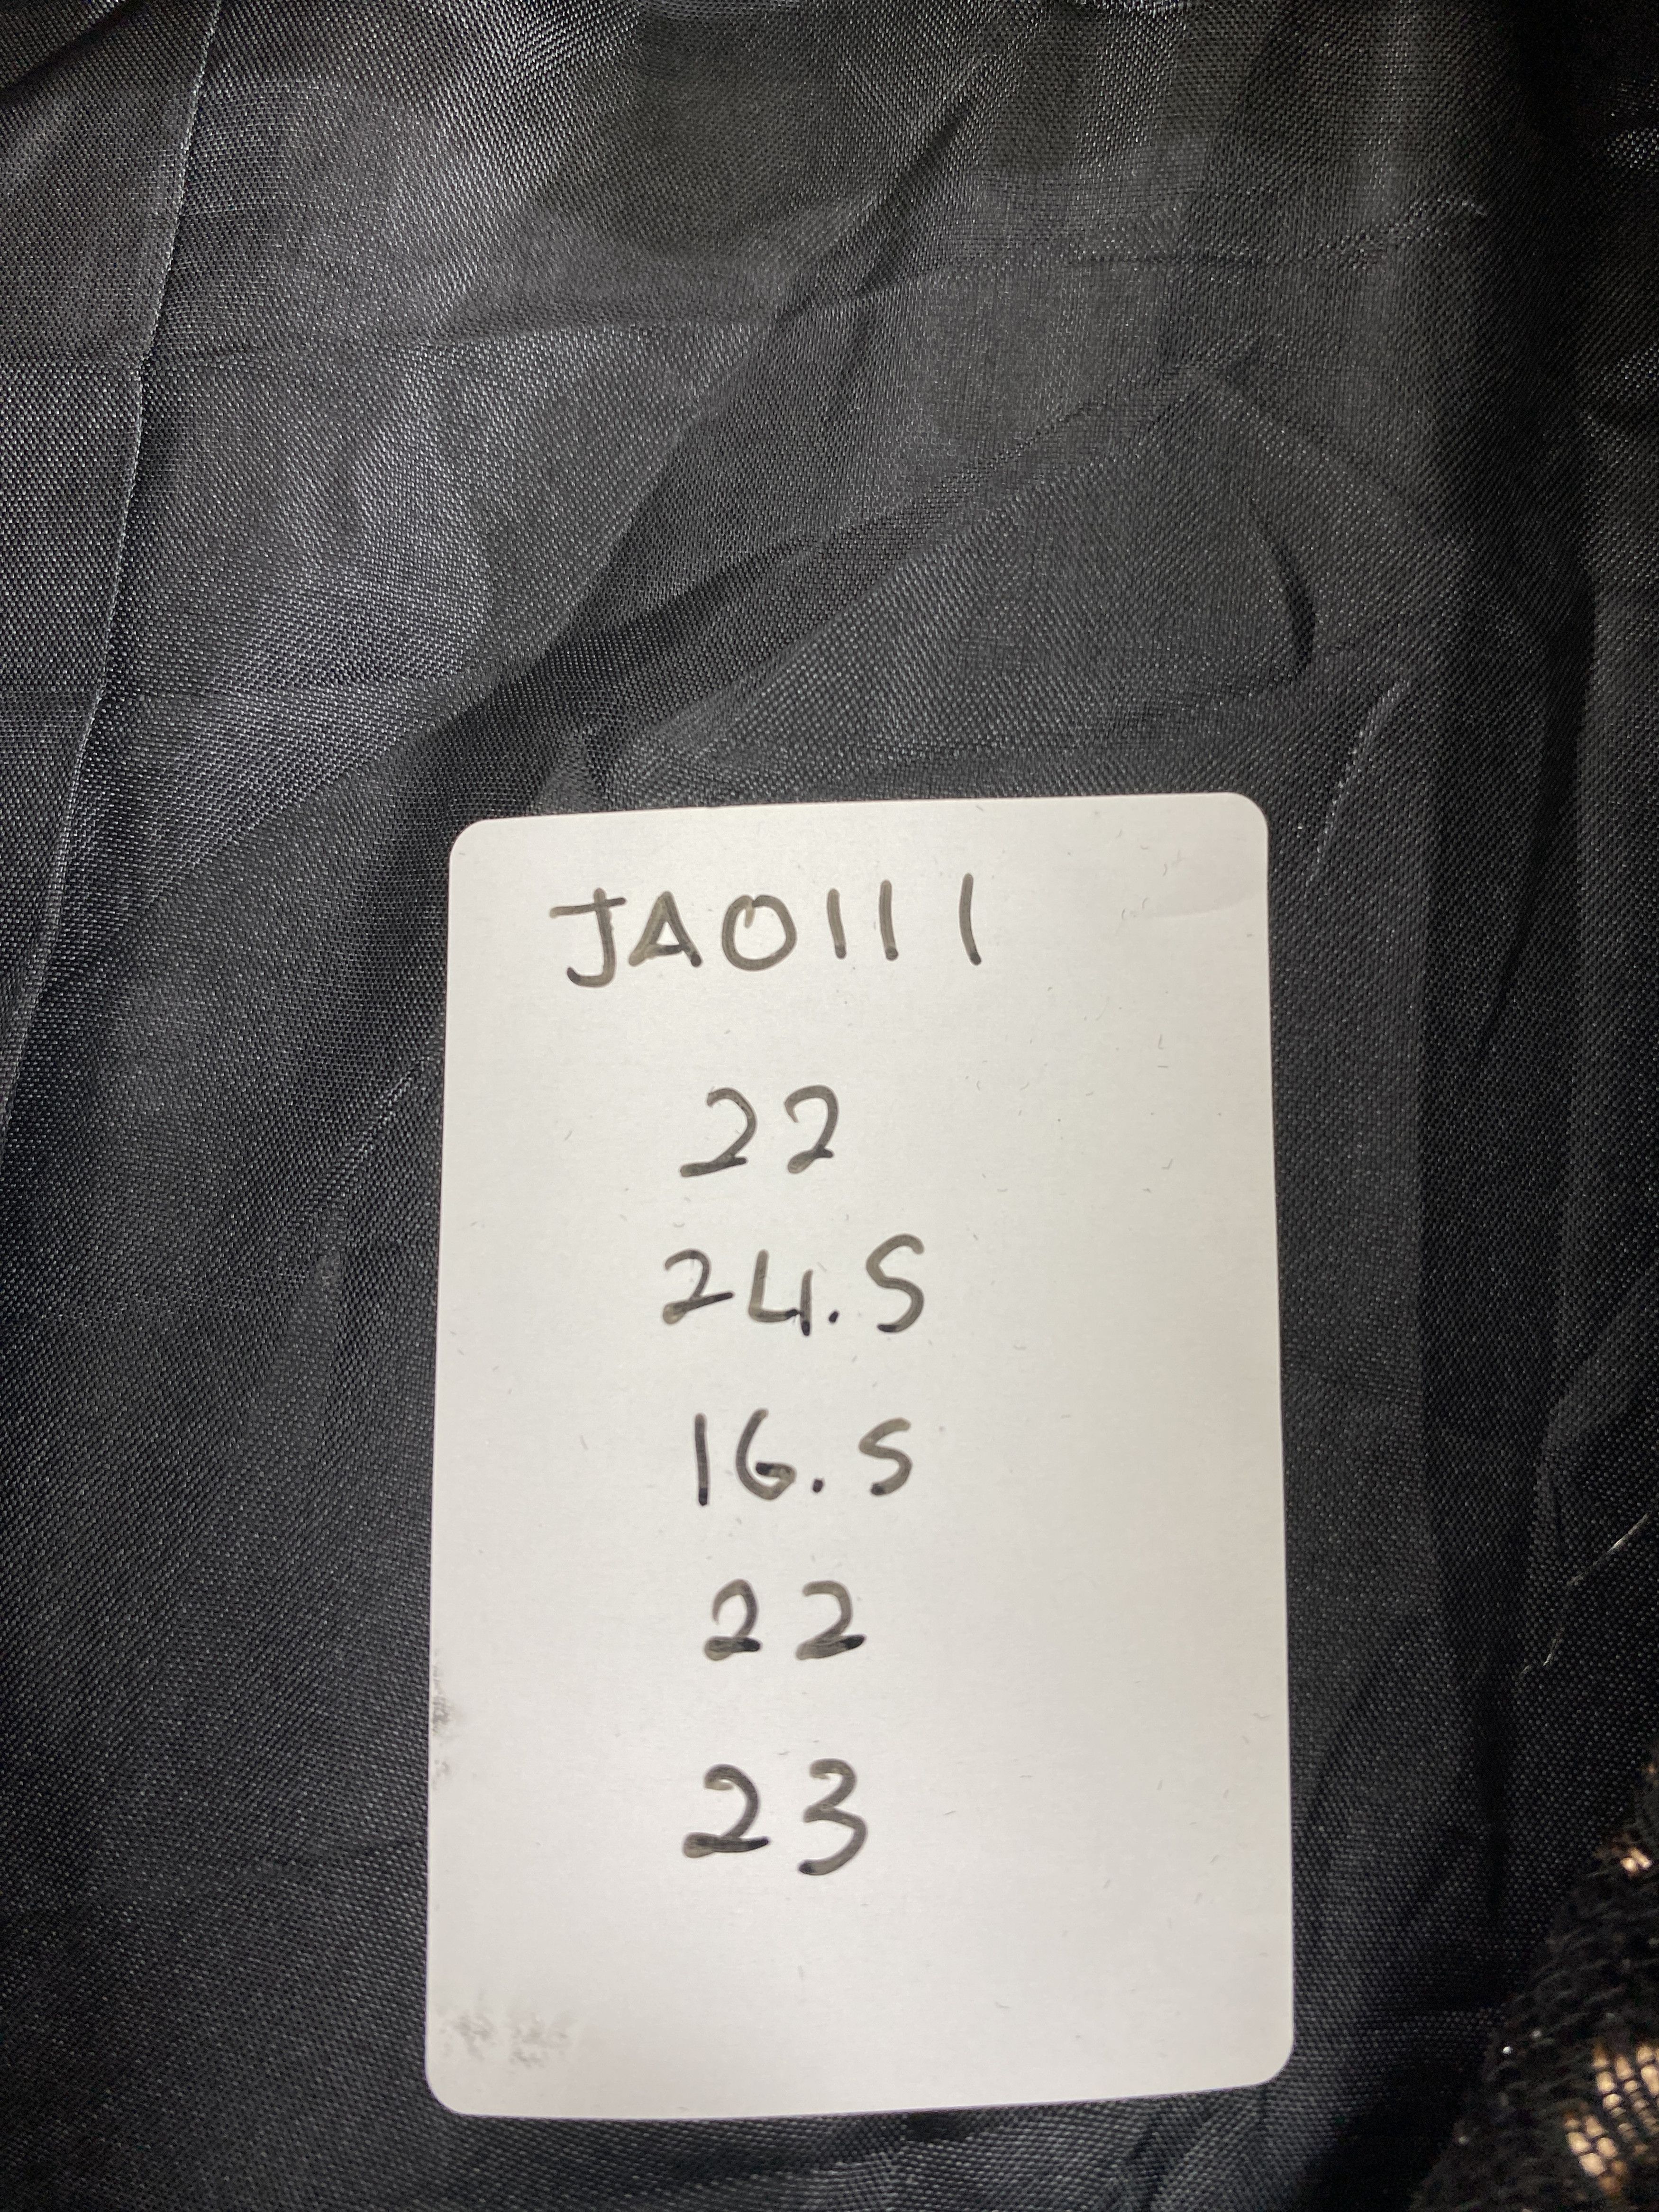 JA0111
22
24.5
16.5
22
23